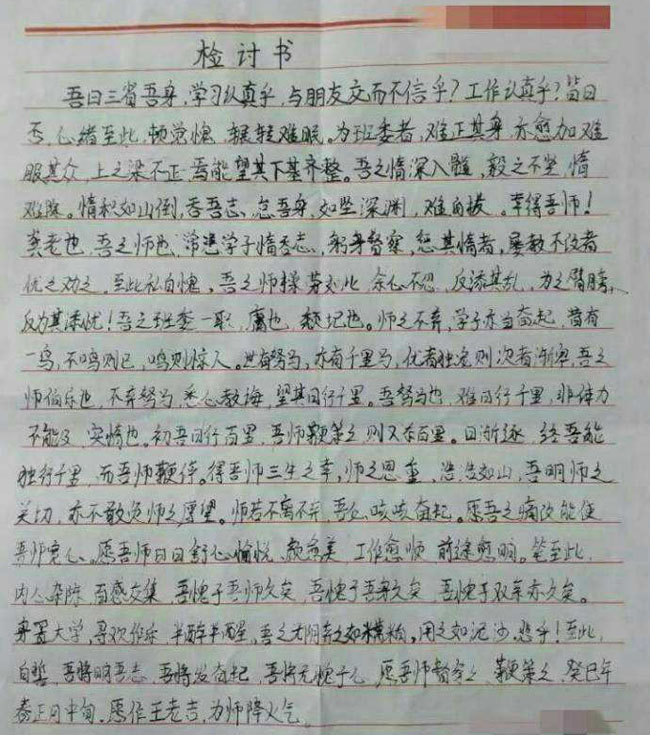 检讨书
吾日三省吾身，学习认真乎，与朋友交而不信乎？工作认真乎？皆曰
否，心绪至此，顿觉愧，辗转难眠。为班委者，难正其身，亦愈加难
服其众，上之梁不正，焉能望其下基齐整。吾之惰深入髓，毅之不坚，惰
难除。惰积如山倒，吞吾志，怠吾身，如坠深渊，难自拔。幸得吾师！
龚老也，吾之师也，常患学子惰吞志，躬身督察，惩其惰者，屡教不改者
忧之劝之，至此私自愧，吾之师操劳如此，余心不忍，反添其乱，为之臂膀，
反为其添忧！吾之班委一职，腐也，颓圮也。师之不弃，学子亦当奋起，昔有
一鸟，不鸣则已，鸣则惊人。世有驽马，亦有千里马，优者独宠则次者渐窄，吾之
师伯乐也，不弃驽马，悉心教诲，望其日行千里。吾驽马也，难日行千里，非体力
不能及，实惰也。初吾日行百里，吾师鞭策之则又奔百里。日渐逐，终吾能
独行千里，而吾师鞭停。得吾师三生之幸，师之恩重，浩浩如山，吾明师之
关切，亦不敢负师之厚望。师若不离不弃，吾必咳咳奋起。愿吾之痛改能使
吾师宽心。愿吾师日日舒心愉悦，颜愈美，工作愈顺，前途愈明。笔至此，
内心杂陈，百感交集，吾愧于吾师久矣，吾愧于吾身久矣，吾愧于双亲亦久矣。
身置大学，寻欢作乐，半醉半醒，吾之光阴弃之如糟粕，用之如泥沙，悲乎！至此，
自誓，吾将明吾志，吾将发奋起，吾将无愧于心，愿吾师督察之，鞭策之，癸巳年
春正月中旬。愿作王老吉，为师降火气。